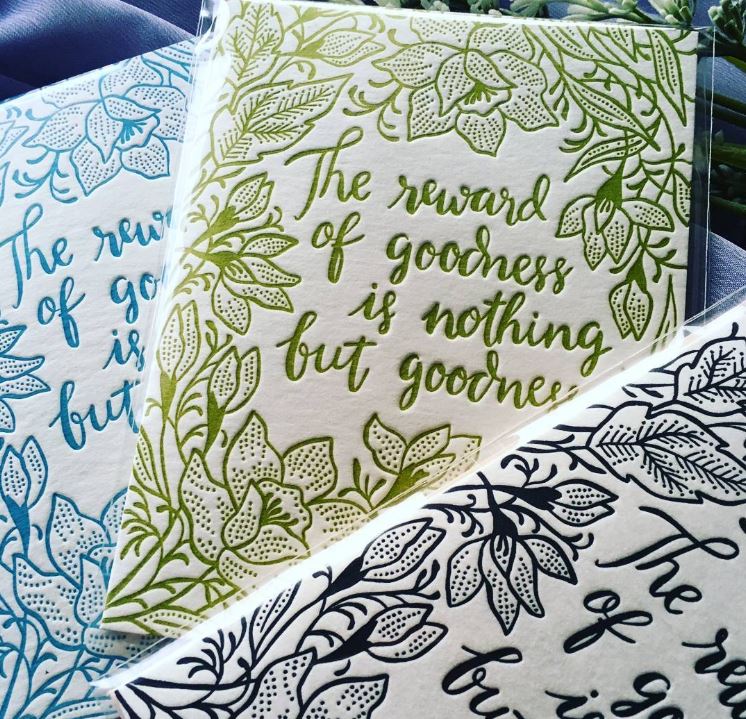 The rew
of go
is
but
The reward
of goodness
is nothing
but goodness
The re
of go